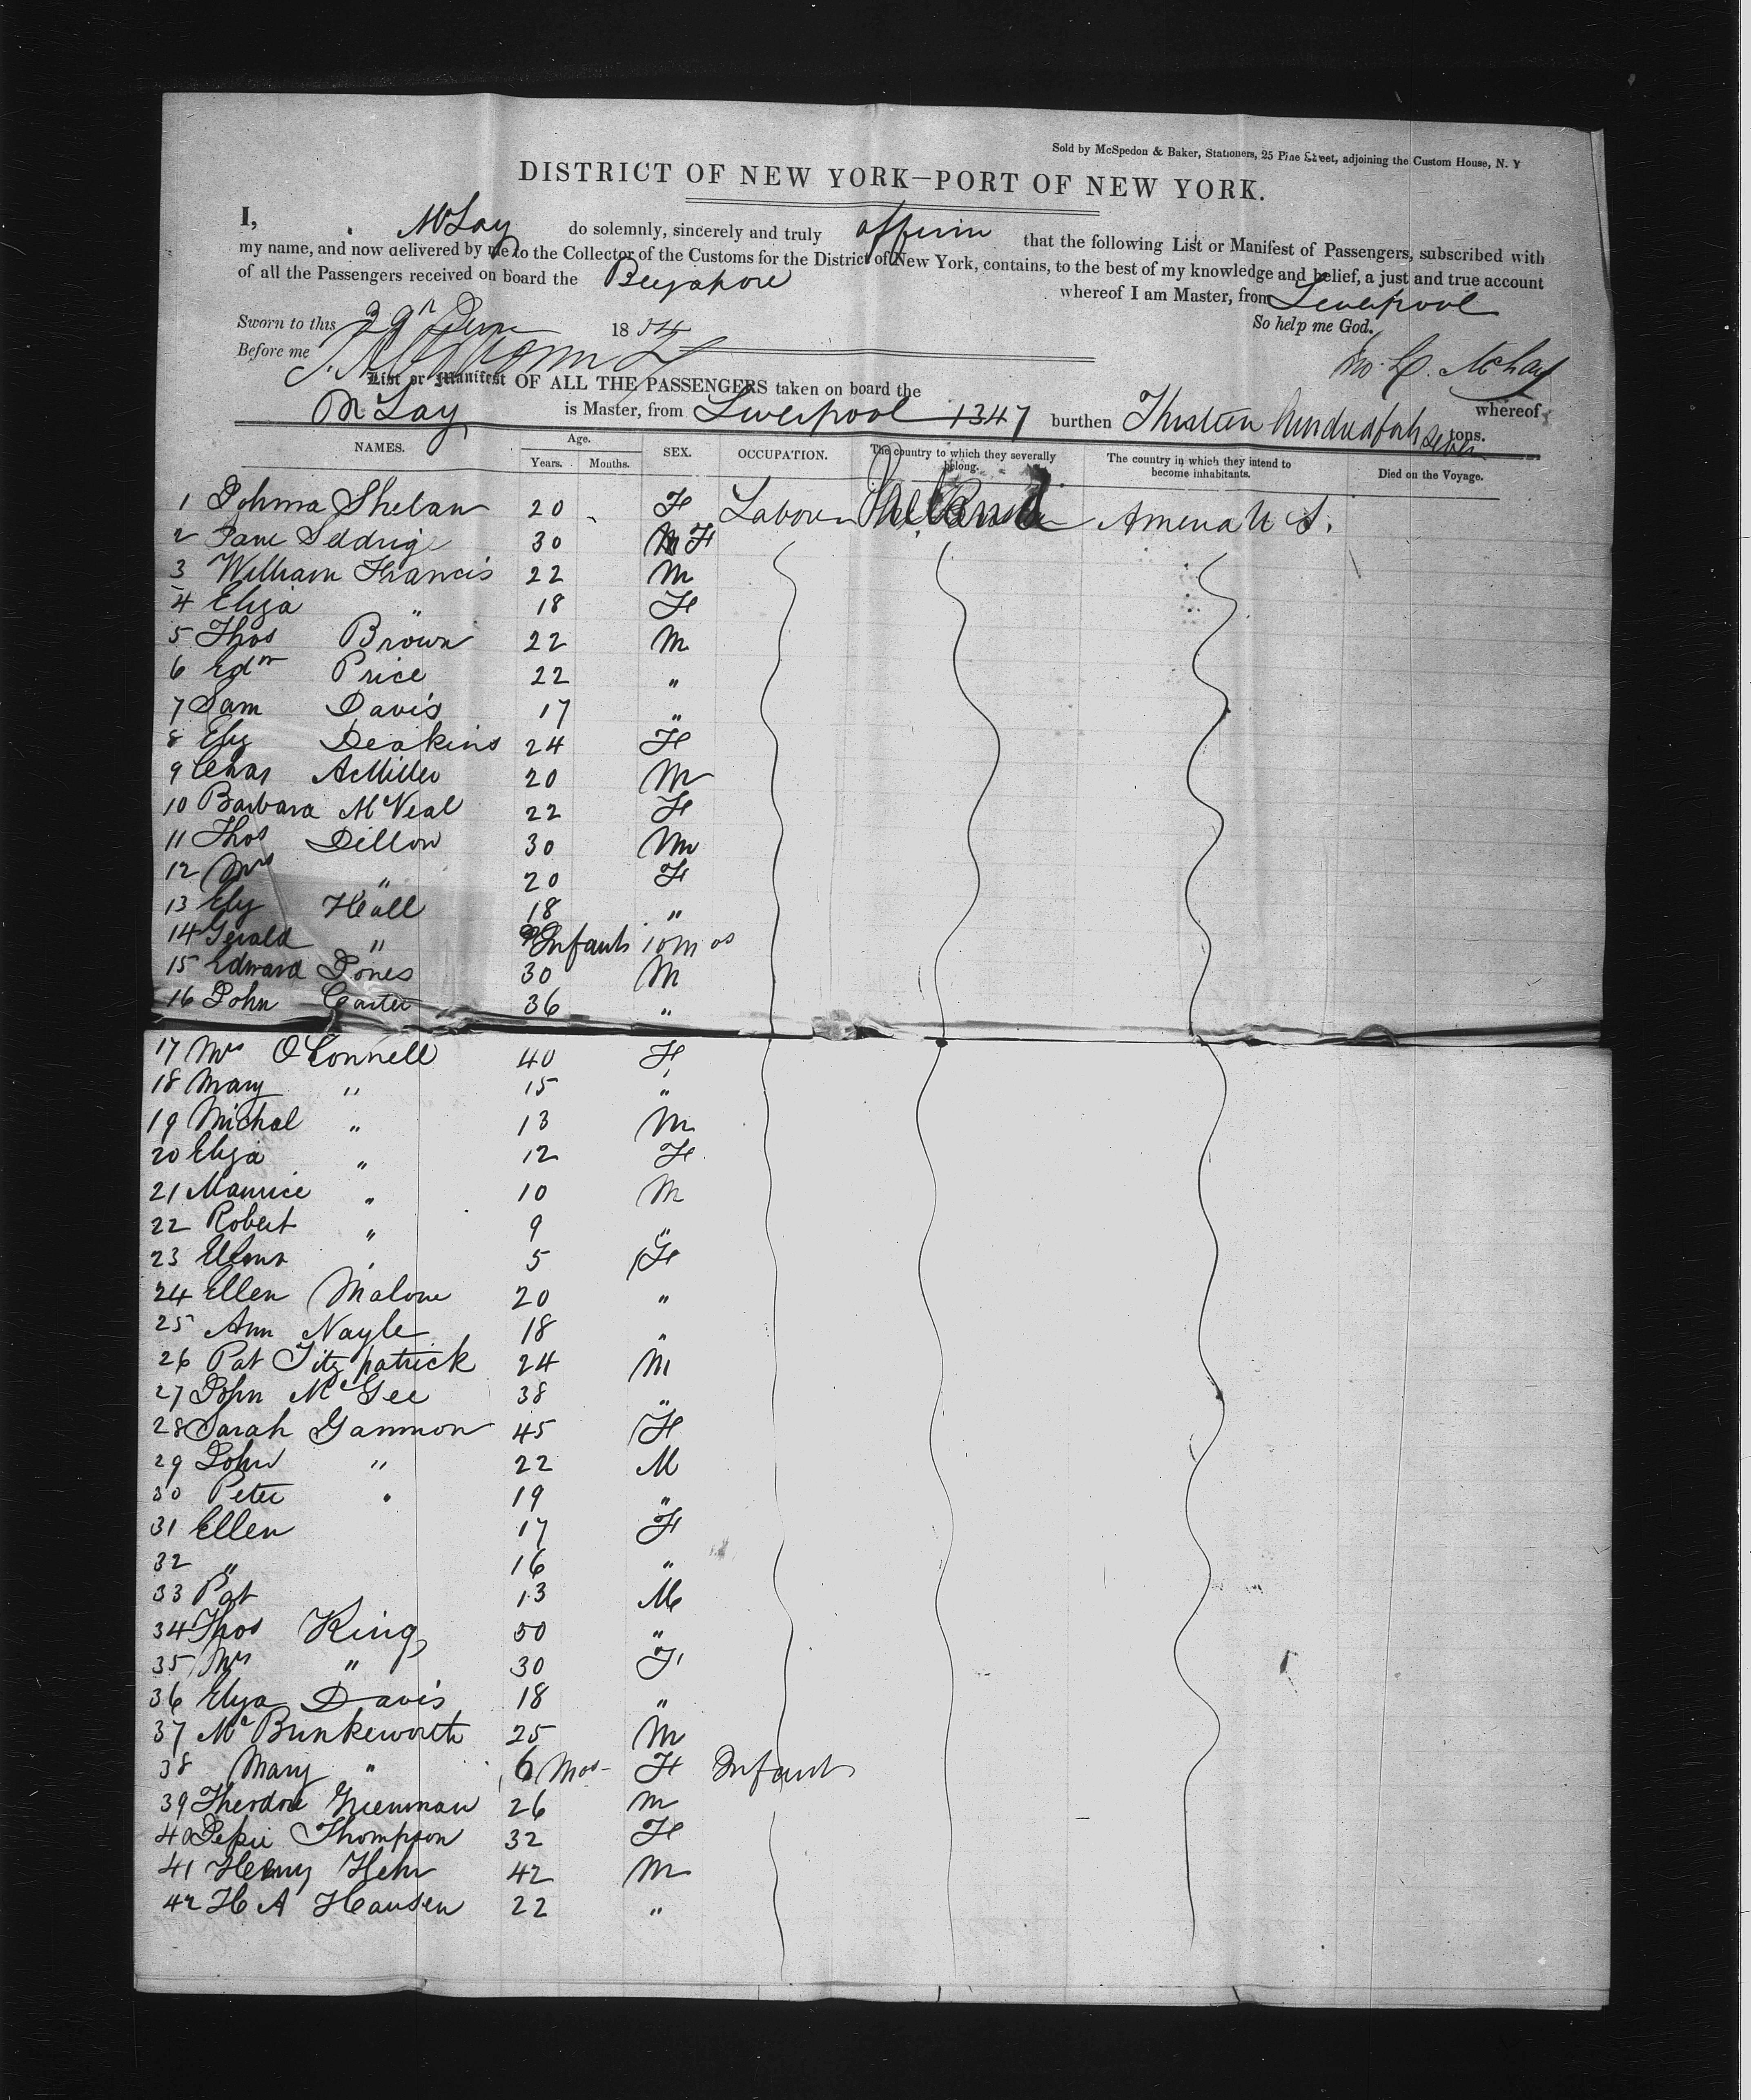 Sold by McSpedon & Baker, Stationers, 25 Pine Street, adjoining the Custom House, N. Y
DISTRICT OF NEW YORK—PORT OF NEW YORK.
I, McLay do solemnly, sincerely and truly affirm that the following List or Manifest of Passengers, subscribed with
my name, and now delivered by me to the Collector of the Customs for the District of New York, contains, to the best of my knowledge and belief, a just and true account
of all the Passengers received on board the whereof I am Master, from Liverpool
Sworn to this 29 1854 So help me God.
Before me McLay
List or Manifest OF ALL THE PASSENGERS taken on board the whereof
McLay is Master, from Liverpool 1347 burthen Thirteen hundred forty seven tons.
NAMES. Age. Years. Months. SEX. OCCUPATION. The country to which they severally belong. The country in which they intend to become inhabitants. Died on the Voyage.
1 Johma Shelan 20 F Labourer America U S.
2 Jane Seldrige 30 F
3 William Francis 22 M
4 Eliza " 18 F
5 Thos Brown 22 M
6 Edw Price 22 "
7 Sam Davis 17 "
8 Eliz Deakins 24 F
9 Chas AMiller 20 M
10 Barbara McNeal 22 F
11 Thos Dillon 30 M
12 Mrs " 20 F
13 Eliz Hall 18 "
14 Gerald " Infant 10 mos
15 Edward Jones 30 M
16 John Carter 36 "
17 Mrs O'Connell 40 F
18 Mary " 15 "
19 Michal " 13 M
20 Eliza " 12 F
21 Maurice " 10 M
22 Robert " 9 "
23 Ellena " 5 F
24 Ellen Malone 20 "
25 Ann Nayle 18 "
26 Pat Fitzpatrick 24 M
27 John McGee 38 "
28 Sarah Gammon 45 F
29 John " 22 M
30 Peter " 19 "
31 Ellen 17 F
32 " 16 "
33 Pat 13 M
34 Thos King 50 "
35 Mrs " 30 F
36 Eliza Davis 18 "
37 Mr Bunkeworth 25 M
38 Mary " 6 Mos F Infant
39 Theodore Grienman 26 M
40 Thompson 32 F
41 Henry Hehr 42 M
42 H A Hausen 22 "